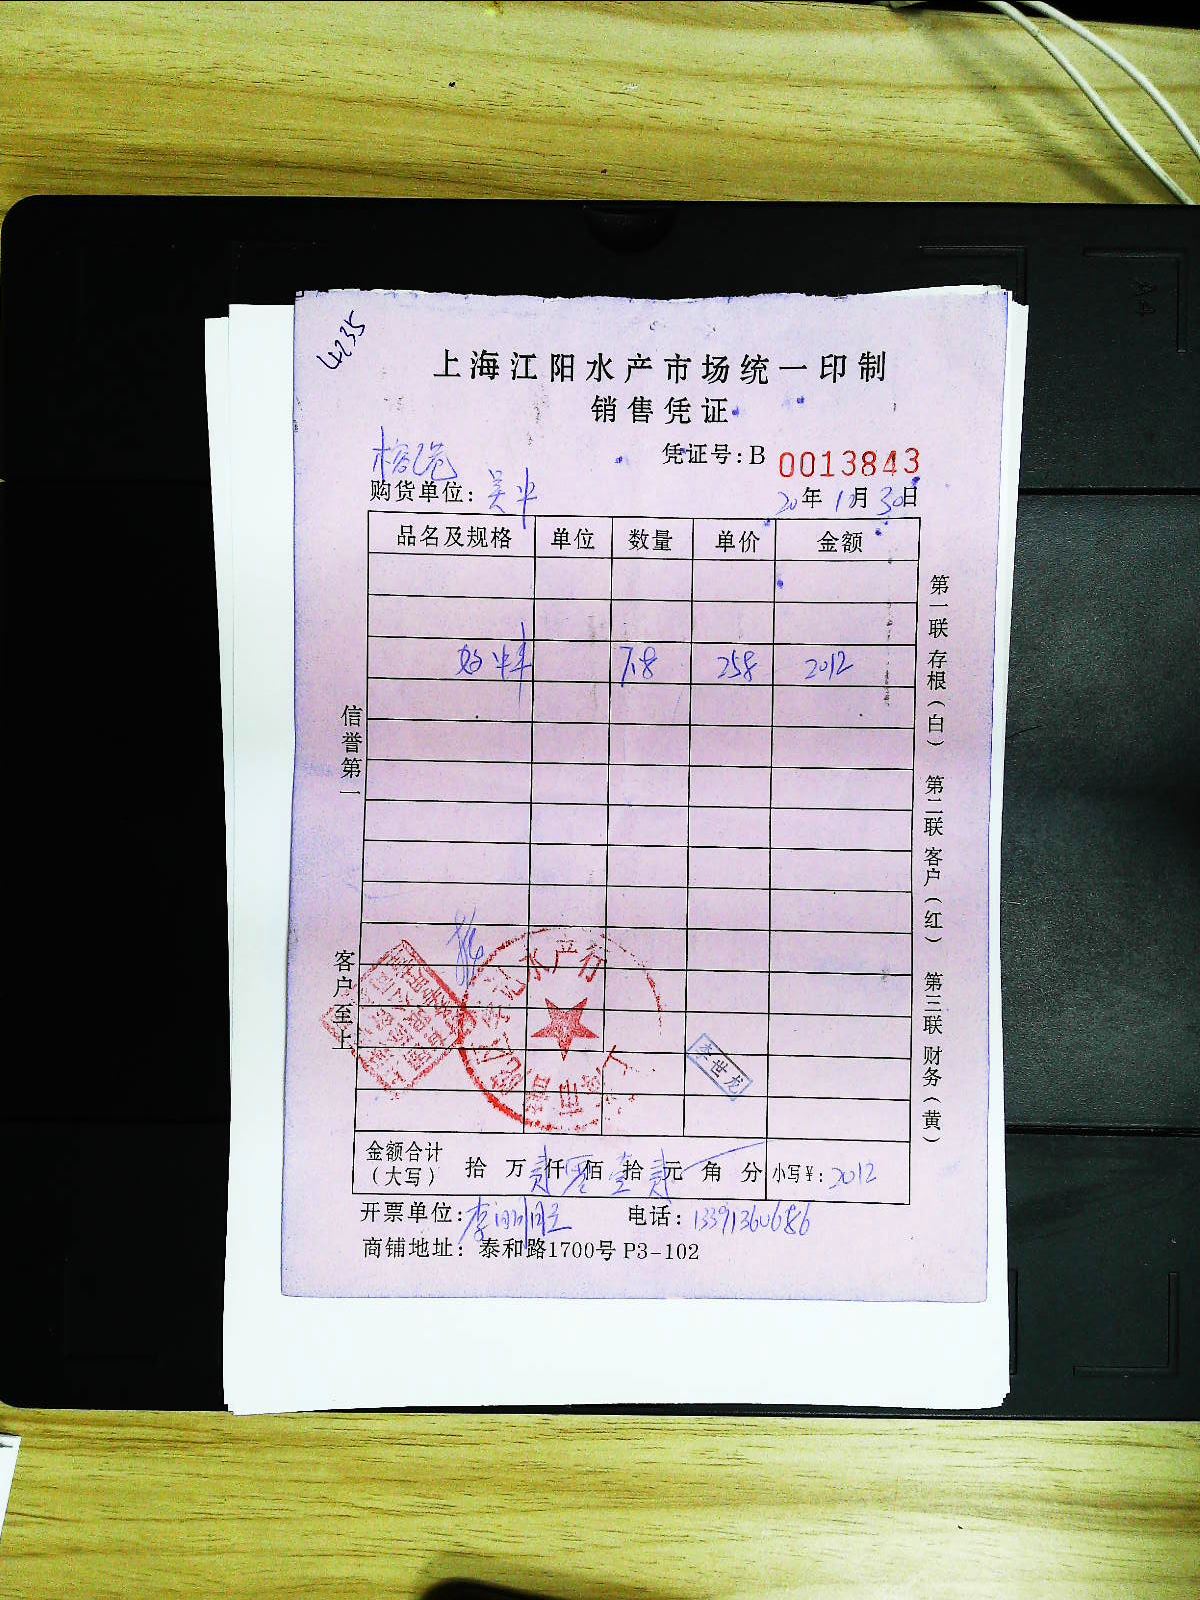 4235
上海江阳水产市场统一印制
销售凭证
凭证号：B 0013843
购货单位：吴
20年10月30日
品名及规格 单位 数量 单价 金额
7.8 258 2012
信誉第一
客户至上
第一联 存根（白） 第二联 客户（红） 第三联 财务（黄）
水产行
李世龙
金额合计（大写） 拾 万贰仟零佰壹拾贰元 角 分 小写¥：2012
开票单位：李 电话：13391360686
商铺地址：泰和路1700号 P3-102
A4